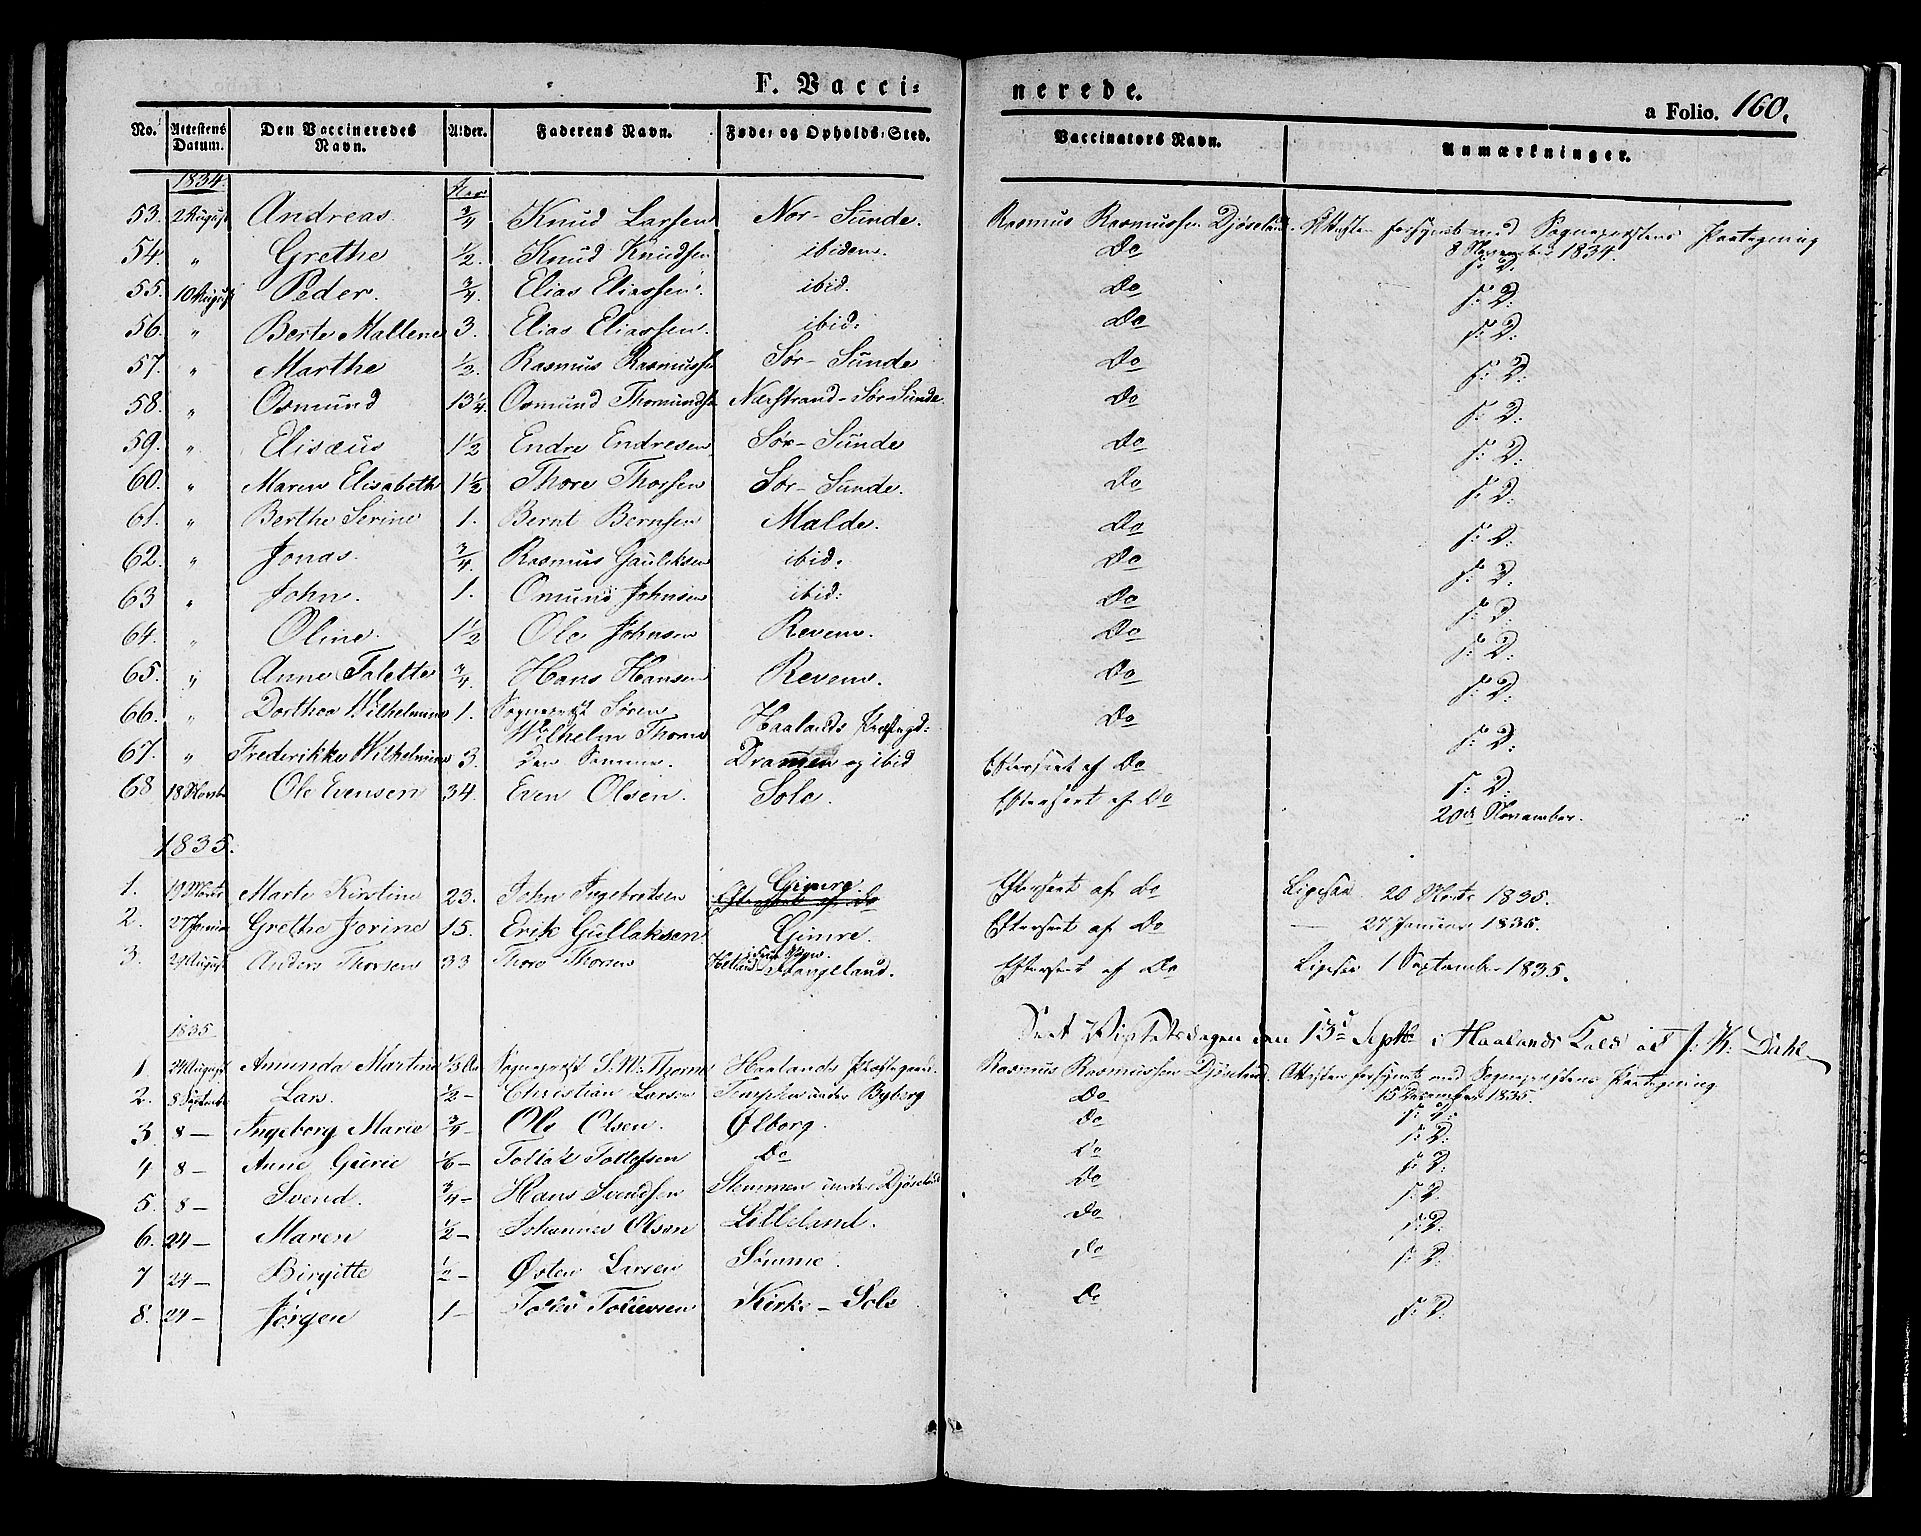 F. Vacci= nerede.
a Folio. 160.
No. Attestens Datum. Den Vaccineredes Navn. Alder. Faderens Navn. Føde- og Opholds-Sted. Vaccinators Navn. Anmærkninger.
1834. Aar
53. 2 August Andreas. 3/4 Knud Larsen Nor-Sunde. Rasmus Rasmussen Djøseland. Attesten forsynet med Sognepræstens Paategning
8 November 1834.
54. " Grethe 1/2. Knud Knudsen ibidem. Do f: D:
55. 10 August Peder. 3/4. Elias Eliassen. ibid. Do f: D:
56. " Berte Mallene 3. Elias Eliassen. ibid: Do f: D:
57. " Marthe 1/2. Rasmus Rasmussen Sør-Sunde Do f: D:
58. " Osmund 13 1/4. Osmund Thormundsen Nærstrand-Sør-Sunde. Do f: D:
59. " Elisæus 1 1/2 Endre Endresen Sør-Sunde Do f: D:
60. " Maren Elisabeth 1 1/2 Thore Thorsen Sør-Sunde. Do f: D:
61. " Berthe Serine 1. Bernt Bernsen Malde. Do f: D:
62. " Jonas. 3/4. Rasmus Gauleksen ibid. Do f: D:
63 " John. 1. Omund Johnsen ibid: Do f: D:
64. " Oline. 1 1/2 Ole Johnsen Reven. Do f: D:
65. " Anne Talette 3/4. Hans Hansen Reven. Do f: D:
66. " Dorthea Wilhelmine 1. Sognepræst Søren Wilhelm Thorne Haalands Præstegd: Do f: D:
67. " Frederikke Wilhelmine 3. Den Samme. Dramen og ibid Efterseet af Do
68 18 Novbr Ole Evensen 34. Even Olsen. Sole. Efterseet af Do f: D:
20de November.
1835.
1. 19 Marts Marte Kirstine 23. John Ingebretsen Gimre. Efterseet af do Ligesaa 20 Marts 1835.
Efterseet af Do
2. 27 Januar Grethe Jorine 15. Erik Gullaksen. Gimre. Efterseet af Do — 27 Januar 1835.
3. 29 August Anders Thorsen 33 Thore Thorsen Stangeland. Efterseet af Do Ligesaa 1 September 1835.
1835
Seet Visitatsdagen den 13de Septbr i Haalands Kald af J: K: Dahl
1 24 August Amunda Martine 1/3 Aar Sognepræst S. W. Thorne Haalands Præstegaard. Rasmus Rasmussen Djøseland. Attesten forsynet med Sognepræstens Paategning
15 December 1835.
2. 8 Septembr Lars. 1/2 — Christian Larsen under Byberg Do f: D:
3. 8 — Ingeborg Marie 3/4 — Ole Olsen. Ølborg. do f: D:
4 8 — Anne Gurie 1/6 — Tollak Tollefsen Do do f: D:
5. 8 — Svend. 3/4 — Hans Svendsen Stemmen under Djøseland Do f: D:
6. 24 — Maren 1/2 — Johannes Olsen Litleland. do f: D:
7 24 — Birgitte 1/2 — Østen Larsen Sømme. do f: D:
8. 24 — Jørgen 1 — Kirke-Sole Do f: D: